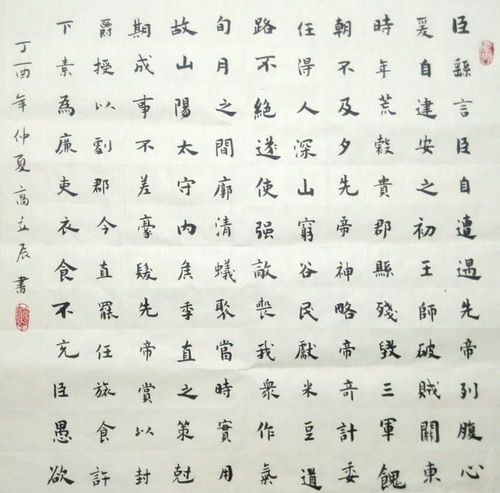 臣繇言臣自遭遇先帝列腹心
爰自建安之初王師破賊關東
時年荒穀貴郡縣殘毀三軍餽
朝不及夕先帝神略奇計委
任得人深山窮谷民獻米豆道
路不絕遂使强敵喪我衆作氣
旬月之間廓清蟻聚當時實用
故山陽太守內關季直之策尅
期成事不差豪髮先帝賞以封
爵授以劇郡今直罷任旅食許
下素為廉吏衣食不充臣愚欲
丁酉年仲夏高立辰書